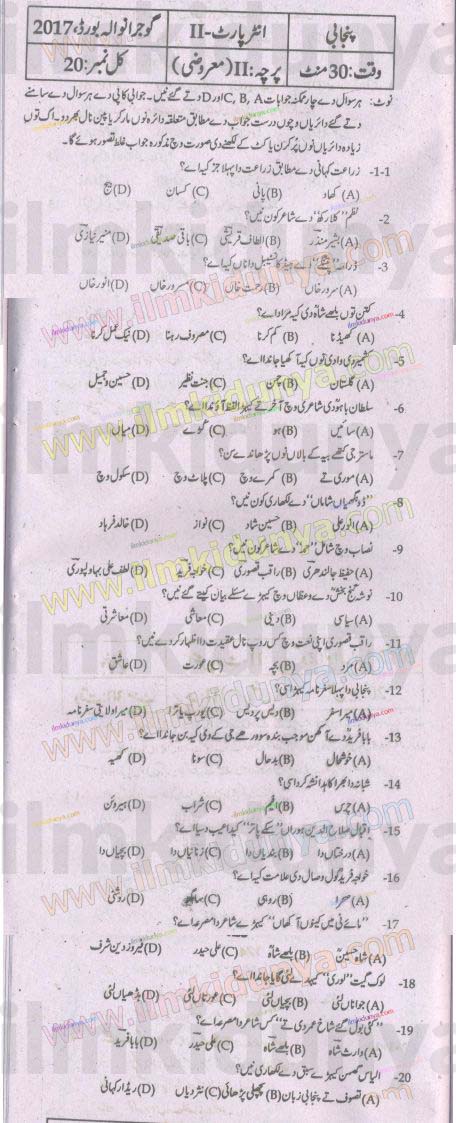 پنجابی
انٹر پارٹ-II
گوجرانوالہ بورڈ، 2017
وقت: 30 منٹ
پرچہ: II (معروضی)
کل نمبر: 20
نوٹ: ہر سوال دے چار ممکنہ جوابات A، B، C اور D دتے گئے نیں۔ جوابی کاپی دے ہر سوال دے سامنے
دتے گئے دائریاں وچوں درست جواب دے مطابق متعلقہ دائرہ نوں مارکر یا پین نال بھر دو۔ اک توں
زیادہ دائریاں نوں پُر کرن یا کٹ کے لکھنے دی صورت وچ مذکورہ جواب غلط تصور ہوئے گا۔
1-1- زراعت کہانی دے مطابق زراعت دا پہلا جز کیہ اے؟
(A) کھاد (B) پانی (C) کسان (D) بیج
2- نظم "کلارکھ" دے شاعر کون نیں؟
(A) بشیر منذر (B) الطاف قریشی (C) باقی صدیقی (D) منیر نیازی
3- ڈراما دے ہیرو کا دا ناں کیہ اے؟
(A) سرور خاں (B) رحمت خاں (C) مسرور خاں (D) انور خاں
4- کتن توں بلھے شاہ دی کیہ مراد اے؟
(A) کھیڈنا (B) کم کرنا (C) مصروف رہنا (D) نیک عمل کرنا
5- کشمیر دی وادی نوں کیہ آکھیا جاندا اے؟
(A) گلستان (B) چمن (C) جنت نظیر (D) حسین و جمیل
6- سلطان باہو دی شاعری وچ آخر تے کیہڑا لفظ آؤندا اے؟
(A) سائیں (B) ہو (C) گلوے (D) میاں
7- ماسٹر جی کتھے بیہ کے بالاں نوں پڑھاندے سن؟
(A) موری تے (B) کمرے وچ (C) پلاٹ وچ (D) سکول وچ
8- "ڈوہنگھیاں شاماں" دے لکھاری کون نیں؟
(A) انور علی (B) حسین شاد (C) نواز (D) خالد فرہاد
9- نصاب وچ شامل "حمد" دے شاعر کون نیں؟
(A) حفیظ جالندھری (B) راقب قصوری (C) خواجہ فرید (D) لطف علی بہاولپوری
10- نوشہ گنج بخش دے وعظاں وچ کیہڑے مسئلے بیان کیتے گئے نیں؟
(A) سیاسی (B) دینی (C) معاشی (D) معاشرتی
11- راقب قصوری اپنی نعت وچ کس روپ نال عقیدت دا اظہار کردے نیں؟
(A) مرد (B) بچہ (C) عورت (D) عاشق
12- پنجابی دا پہلا سفرنامہ کیہڑا سی؟
(A) میرا سفر (B) دیس پردیس (C) یورپ یاترا (D) میرا ولایتی سفرنامہ
13- بابا فرید دے آکھن موجب بندہ سودھرے جی کے وی کیہ بن جاندا اے؟
(A) خوشحال (B) بدحال (C) سونا (D) کھیہ
14- شبانہ دا بھرا کاہدا نشہ کردا سی؟
(A) چرس (B) افیم (C) شراب (D) ہیروئن
15- اقبال صلاح الدین ہوراں "سکے باتر" کیہدا عیب دسیا اے؟
(A) درختاں دا (B) بندیاں دا (C) زنانیاں دا (D) بچیاں دا
16- خواجہ فرید کول وصال دی علامت کیہ اے؟
(A) صحرا (B) روہی (C) سہاگ (D) روشنی
17- "مائے نی میں کینوں آکھاں" کیہڑے شاعر دا مصرعہ اے؟
(A) شاہ حسین (B) بلھے شاہ (C) علی حیدر (D) فیروز دین شرف
18- لوک گیت "لوری" کیہدے لئی گایا جاندا اے؟
(A) جواناں لئی (B) بچیاں لئی (C) عورتاں لئی (D) بڈھیاں لئی
19- "کئی بول گئے شاخ عمر دی تے" کس شاعر دا مصرعہ اے؟
(A) وارث شاہ (B) بلھے شاہ (C) علی حیدر (D) بابا فرید
20- الیاس گھمن کیہڑے سبق دے لکھاری نیں؟
(A) تصوف تے پنجابی زبان (B) پچھلی پڑھائی (C) نذر دیاں (D) ریڈار کہانی
www.ilmkidunya.com